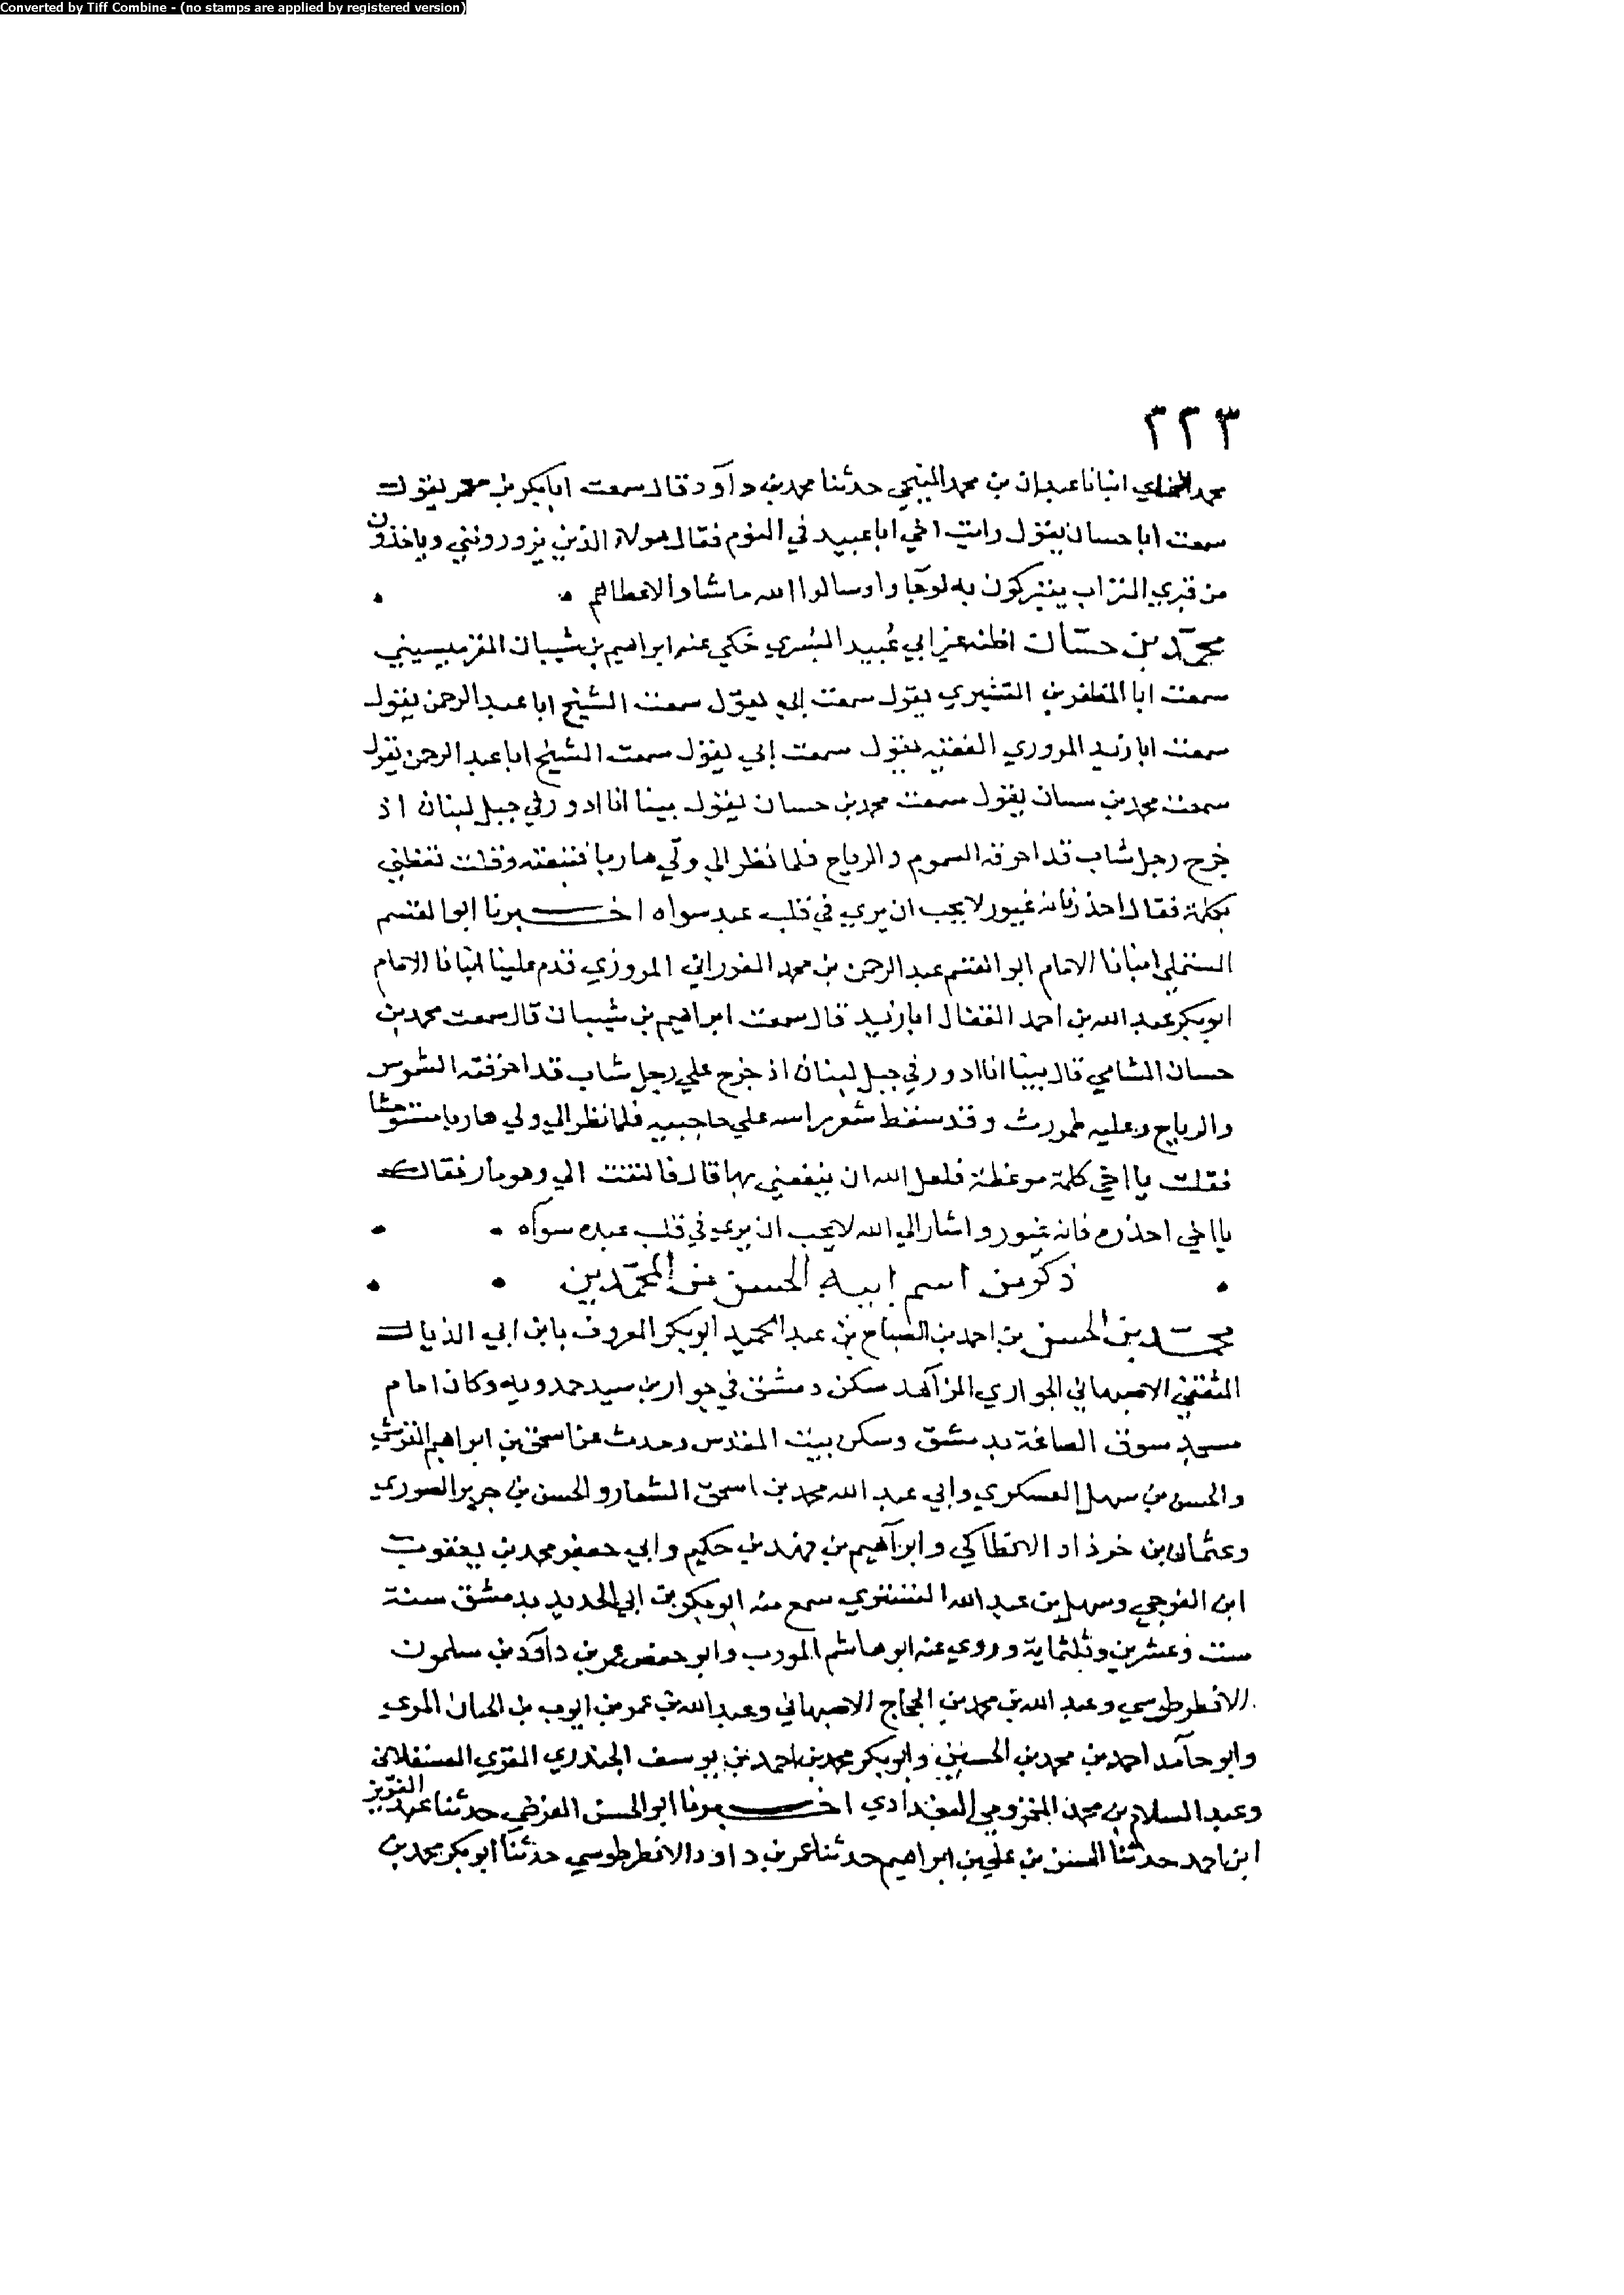 Converted by Tiff Combine - (no stamps are applied by registered version)
٢٢٣
محمد انبانا عبدان بن محمد المنبجي حدثنا محمد بن داود قال سمعت ابا بكر بن معمر يقول
سمعت ابا حسان يقول رايت اخي ابا عبيد في النوم فقال هولاء الذين يزورونني وياخذون
من قبري التراب يتبركون به لو جاوا وسالوا الله ما شاوا لاعطاهم
محمد بن حسان اظنه عن ابي عبيد البسري حكي عنه ابراهيم بن شيبان القرميسيني
سمعت ابا المظفر بن القشيري يقول سمعت ابي يقول سمعت الشيخ ابا عبد الرحمن يقول
سمعت ابا زيد المروزي الفقيه يقول سمعت ابي يقول سمعت الشيخ ابا عبد الرحمن يقول
سمعت محمد بن سسان يقول سمعت محمد بن حسان يقول بينا انا ادور في جبل لبنان اذ
خرج رجل شاب قد احرقه السموم والرياح فلما نظر الي ولي هاربا فتبعته وقلت تعظني
بكلمة فقال احذر فانه غيور لا يحب ان يري في قلب عبد سواه اخبرنا ابو القسم
المستملي انبانا الامام ابو القسم عبد الرحمن بن محمد الفوراني المروزي قدم علينا انبانا الامام
ابو بكر عبد الله بن احمد القفال ابا زيد قال سمعت ابراهيم بن شيبان قال سمعت محمد بن
حسان الشامي قال بينا انا ادور في جبل لبنان اذ خرج علي رجل شاب قد احرقته الشموس
والرياح وعليه طمررث وقد سقط شعر راسه علي حاجبيه فلما نظر الي ولي هاربا مستوحشا
فقلت يا اخي كلمة موعظة فلعل الله ان ينفعني بها قال فالتفت الي وهو مار فقال
يا اخي احذره فانه غيور واشار الي الله لا يحب ان يري في قلب عبده سواه
ذكر من اسم ابيه الحسن من المحمدين
محمد بن الحسن بن احمد بن الصباح بن عبد الحميد ابو بكر المعروف بابن ابي الذيال
الثقفي الاصبهاني الجواري الزاهد سكن دمشق في جوار بن سيد حمدويه وكان امام
مسجد سوق الصاغة بدمشق وسكن بيت المقدس وحدث عن اسحق بن ابراهيم القرشي
والحسن بن سهل العسكري وابي عبد الله محمد بن اسحق الشعار والحسن بن جرير الصوري
وعثمان بن خرذاد الانطاكي وابراهيم بن فهد بن حكيم وابي جعفر محمد بن يعقوب
ابن الفرجي وسهل بن عبد الله التستري سمع منه ابو بكر بن ابي الحديد بدمشق سنة
ست وعشرين وثلثماية وروي عنه ابو هاشم المودب وابو حفص عمر بن داود بن سلمون
الانطرطوسي وعبد الله بن محمد بن الحجاج الاصبهاني وعبد الله بن عمر بن ايوب بن الحبان المري
وابو حامد احمد بن محمد بن الحسين وابو بكر محمد بن احمد بن يوسف الجندري المقري العسقلاني
وعبد السلام بن محمد المخزومي البغدادي اخبرنا ابو الحسن الفرضي حدثنا عبد العزيز
ابن احمد حدثنا الحسن بن علي بن ابراهيم حدثنا عمر بن داود الانطرطوسي حدثنا ابو بكر محمد بن